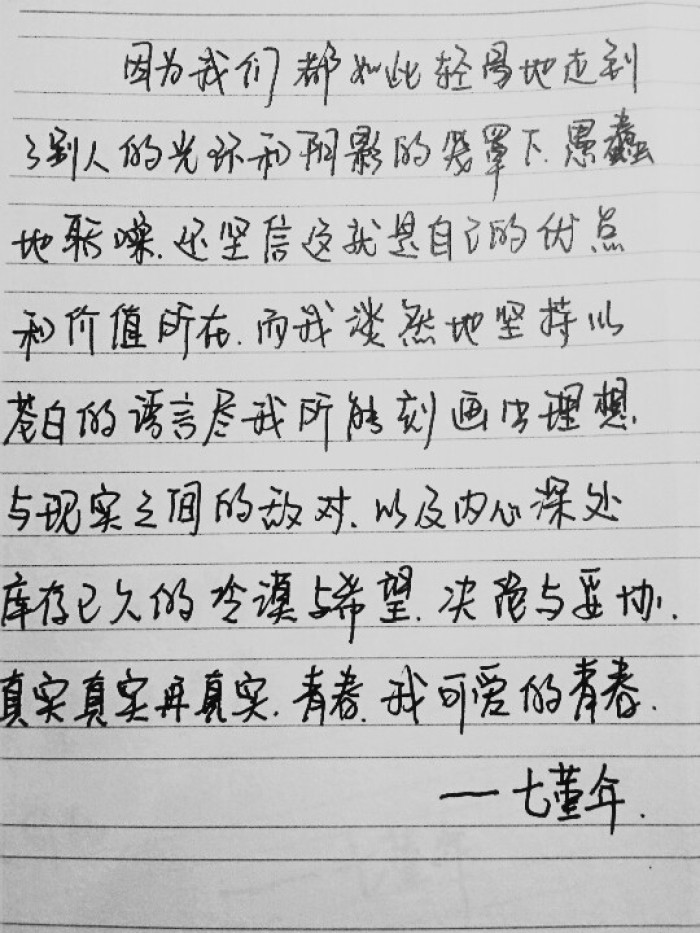 因为我们都如此轻易地走到
了别人的光环和阴影的笼罩下.愚蠢
地聒噪.还坚信这就是自己的优点
和价值所在.而我淡然地坚持以
苍白的语言尽我所能刻画出理想
与现实之间的敌对.以及内心深处
库存已久的冷漠与希望.决绝与妥协.
真实真实再真实.青春.我可爱的青春.
——七堇年.